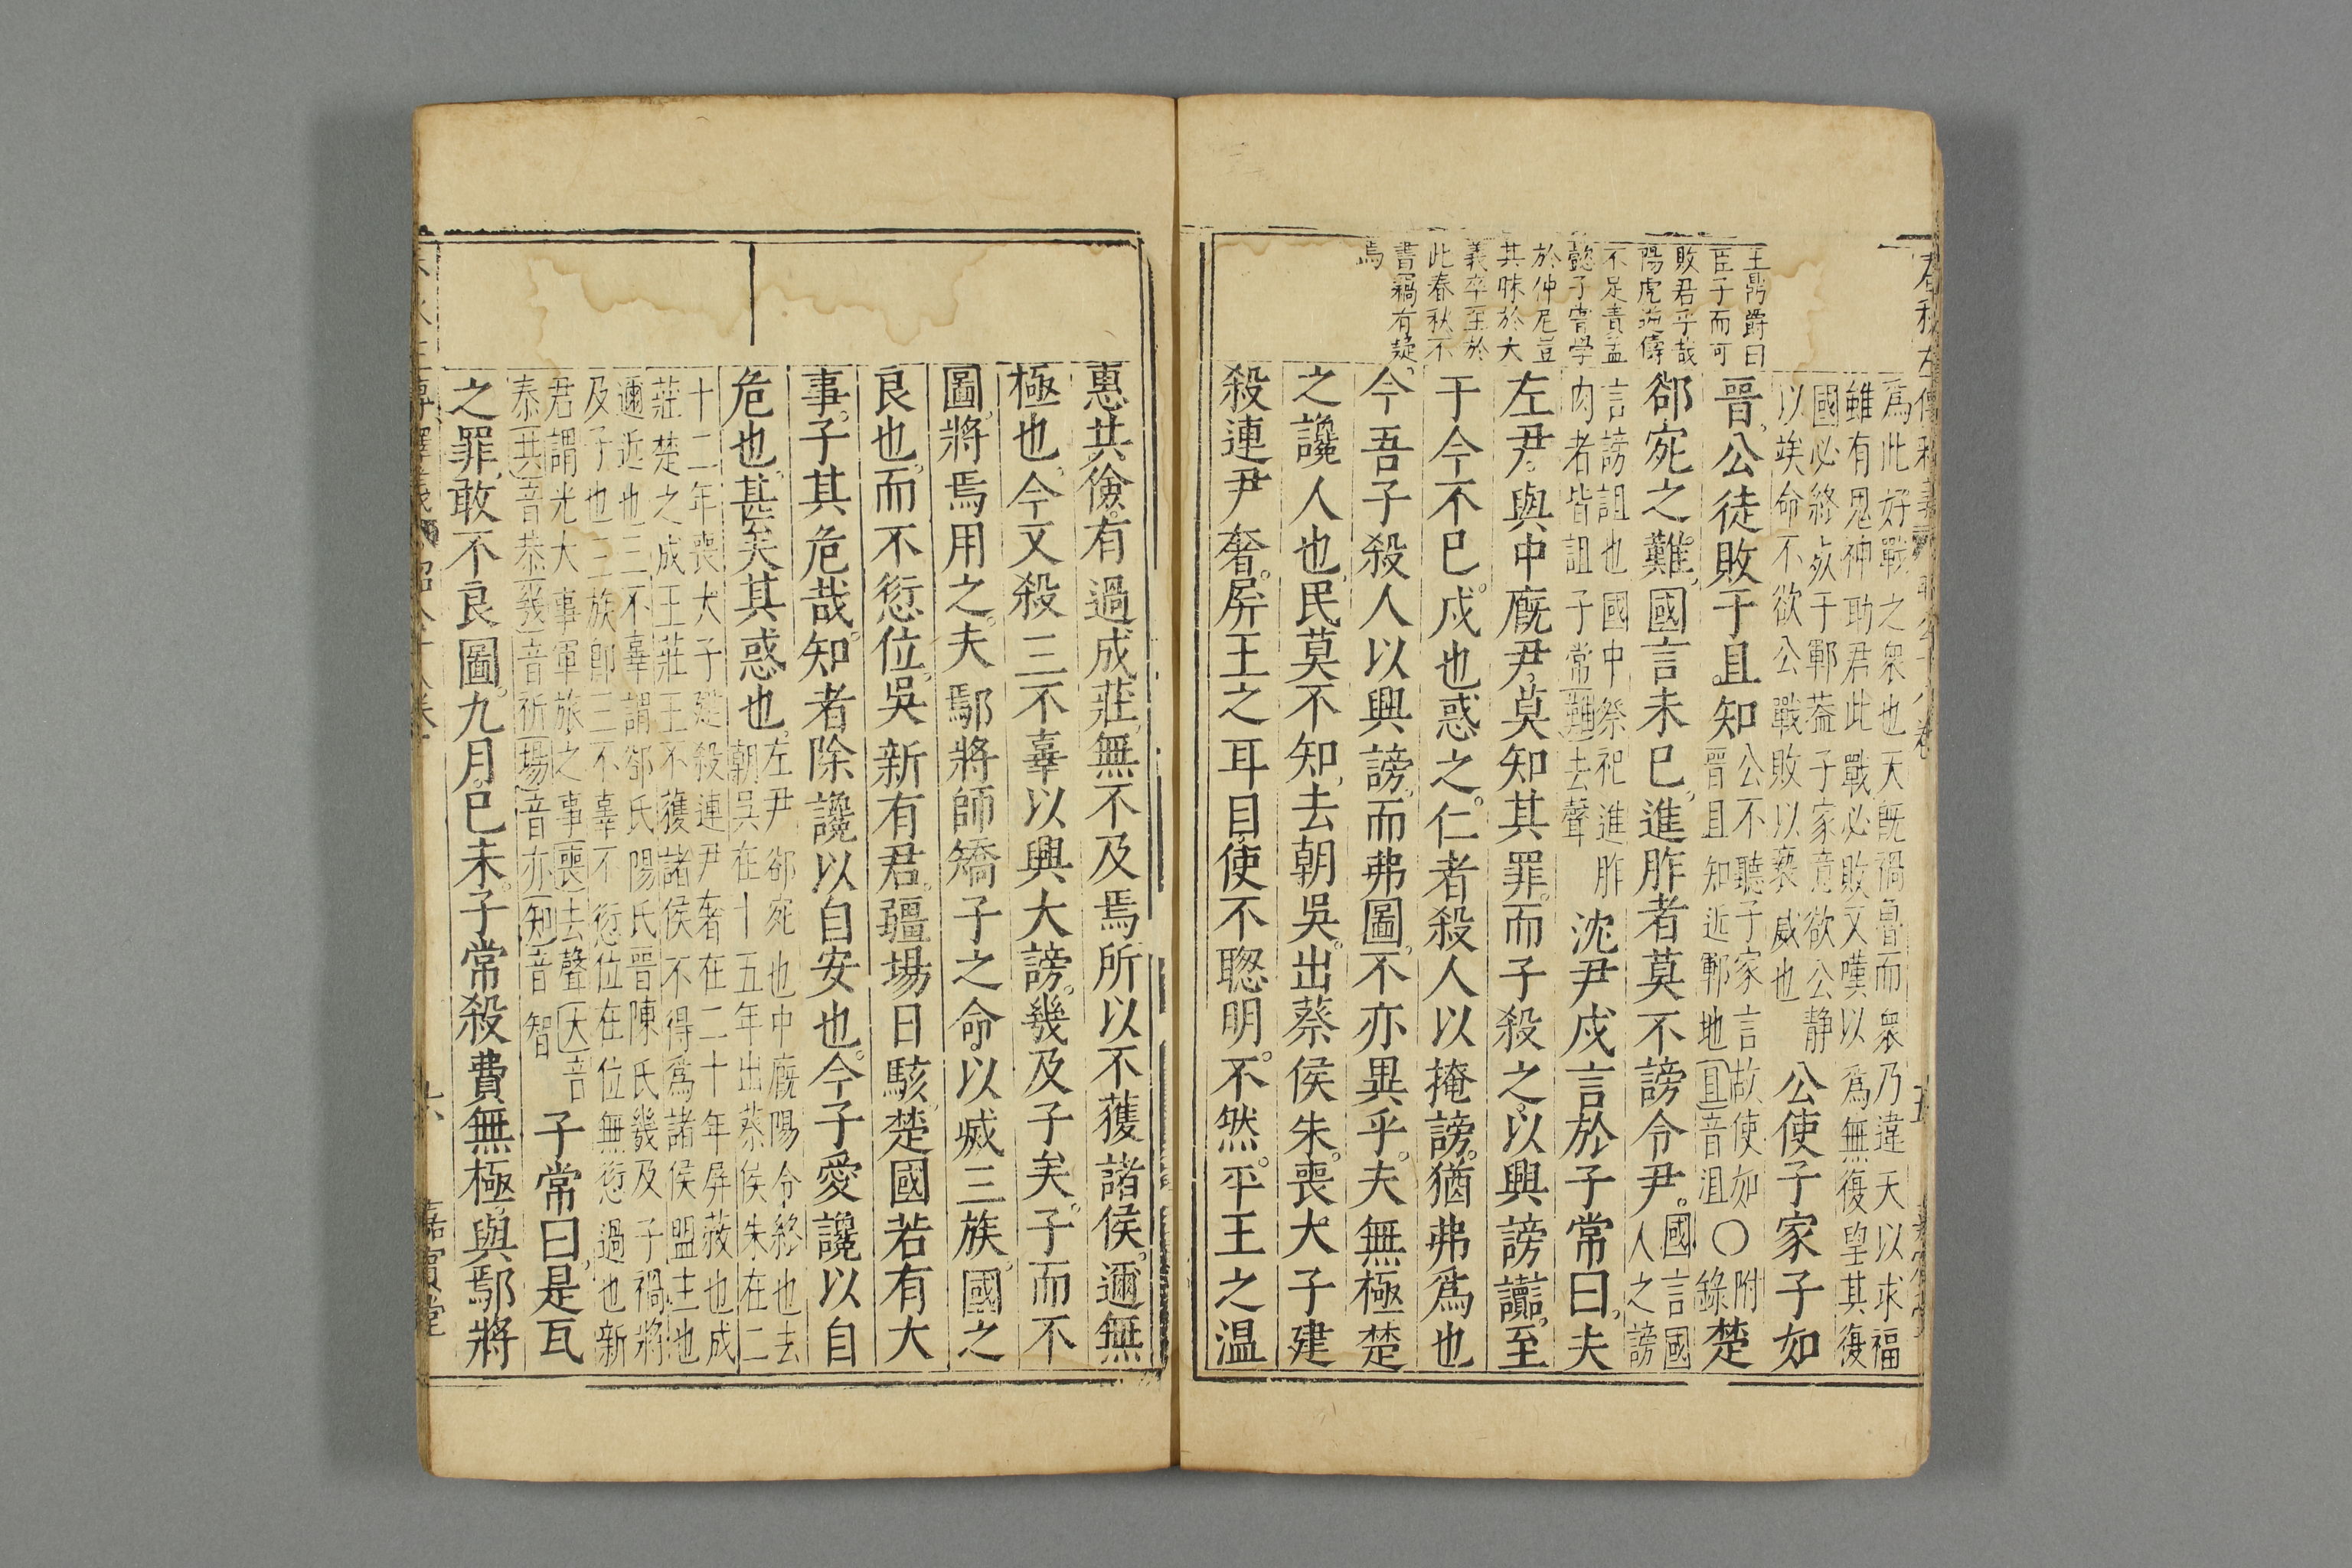 王鼎爵曰
臣子而可
敗君乎哉
陽虎
不足責孟
懿子嘗學
於仲尼豈
其昧於大
義卒至於
此春秋不
書禍有疑
焉
爲此好戰之衆也天既禍魯而衆乃違天以求福
雖有鬼神助君此戰必敗又嘆以爲無復望其復
國必終死于鄆葢子家意欲公静
以竢命不欲公戰敗以褻威也
公使子家子如
晉公徒敗于且知
公不聽子家言故使如
晉且知近鄆地且音沮
〇附
錄
楚
郤宛之難國言未已進胙者莫不謗令尹
國言國
人之謗
言謗詛也國中祭祀進胙
肉者皆詛子常難去聲
沈尹戌言於子常曰夫
左尹與中廐尹莫知其罪而子殺之以興謗讟至
于今不已戌也惑之仁者殺人以掩謗猶弗爲也
今吾子殺人以興謗而弗圖不亦異乎夫無極楚
之讒人也民莫不知去朝吳出蔡侯朱喪大子建
殺連尹奢屏王之耳目使不聰明不然平王之温
惠共儉有過成莊無不及焉所以不獲諸侯邇無
極也今又殺三不辜以興大謗幾及子矣子而不
圖將焉用之夫鄢將師矯子之命以滅三族國之
良也而不愆位吳新有君疆場日駭楚國若有大
事子其危哉知者除讒以自安也今子愛讒以自
危也甚矣其惑也
左尹郤宛也中廐陽令終也去
朝吳在十五年出蔡侯朱在二
十二年喪大子建殺連尹奢在二十年屏蔽也成
莊楚之成王莊王不獲諸侯不得爲諸侯盟主也
邇近也三不辜謂郤氏陽氏晉陳氏幾及子禍將
及子也三族即三不辜不愆位在位無愆過也新
君謂光大事軍旅之事喪去聲大音
泰共音恭幾音祈場音亦知音智
子常曰是瓦
之罪敢不良圖九月己未子常殺費無極與鄢將
嘉賓堂